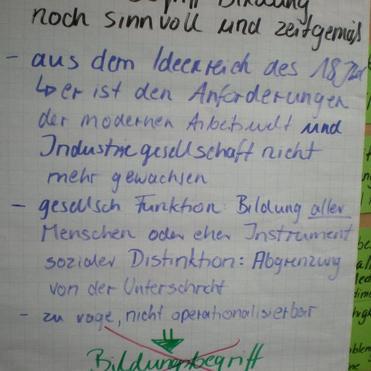 Begriff Bildung
noch sinnvoll und zeitgemäß
- aus dem Ideenreich des 18. Jh
↳ er ist den Anforderungen
der modernen Arbeitswelt und
Industriegesellschaft nicht
mehr gewachsen
- gesellsch Funktion: Bildung aller
Menschen oder eher Instrument
sozialer Distinktion: Abgrenzung
von der Unterschicht
- zu vage, nicht operationalisierbar
Bildungsbegriff